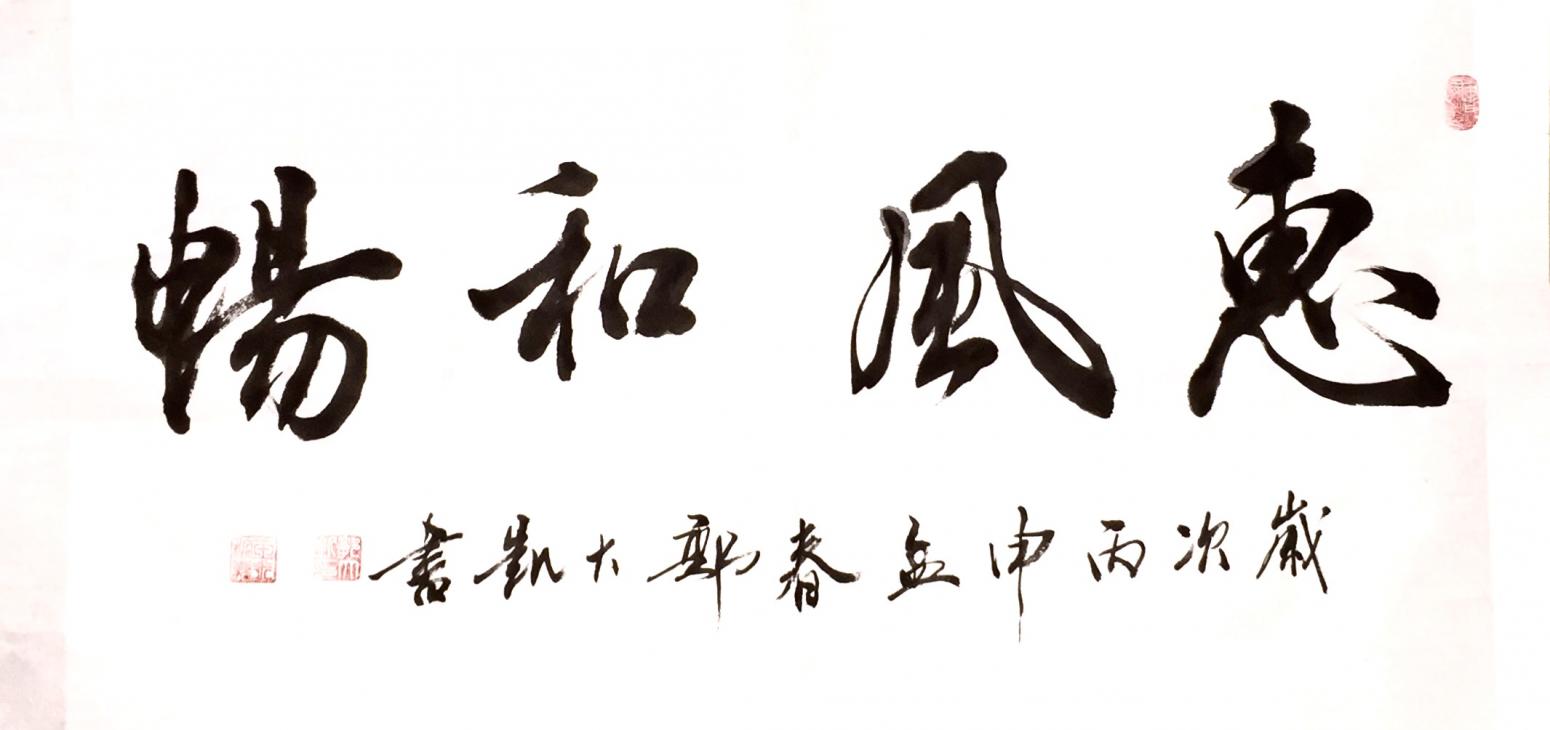 惠風和暢
歲次丙申孟春鄭大凱書